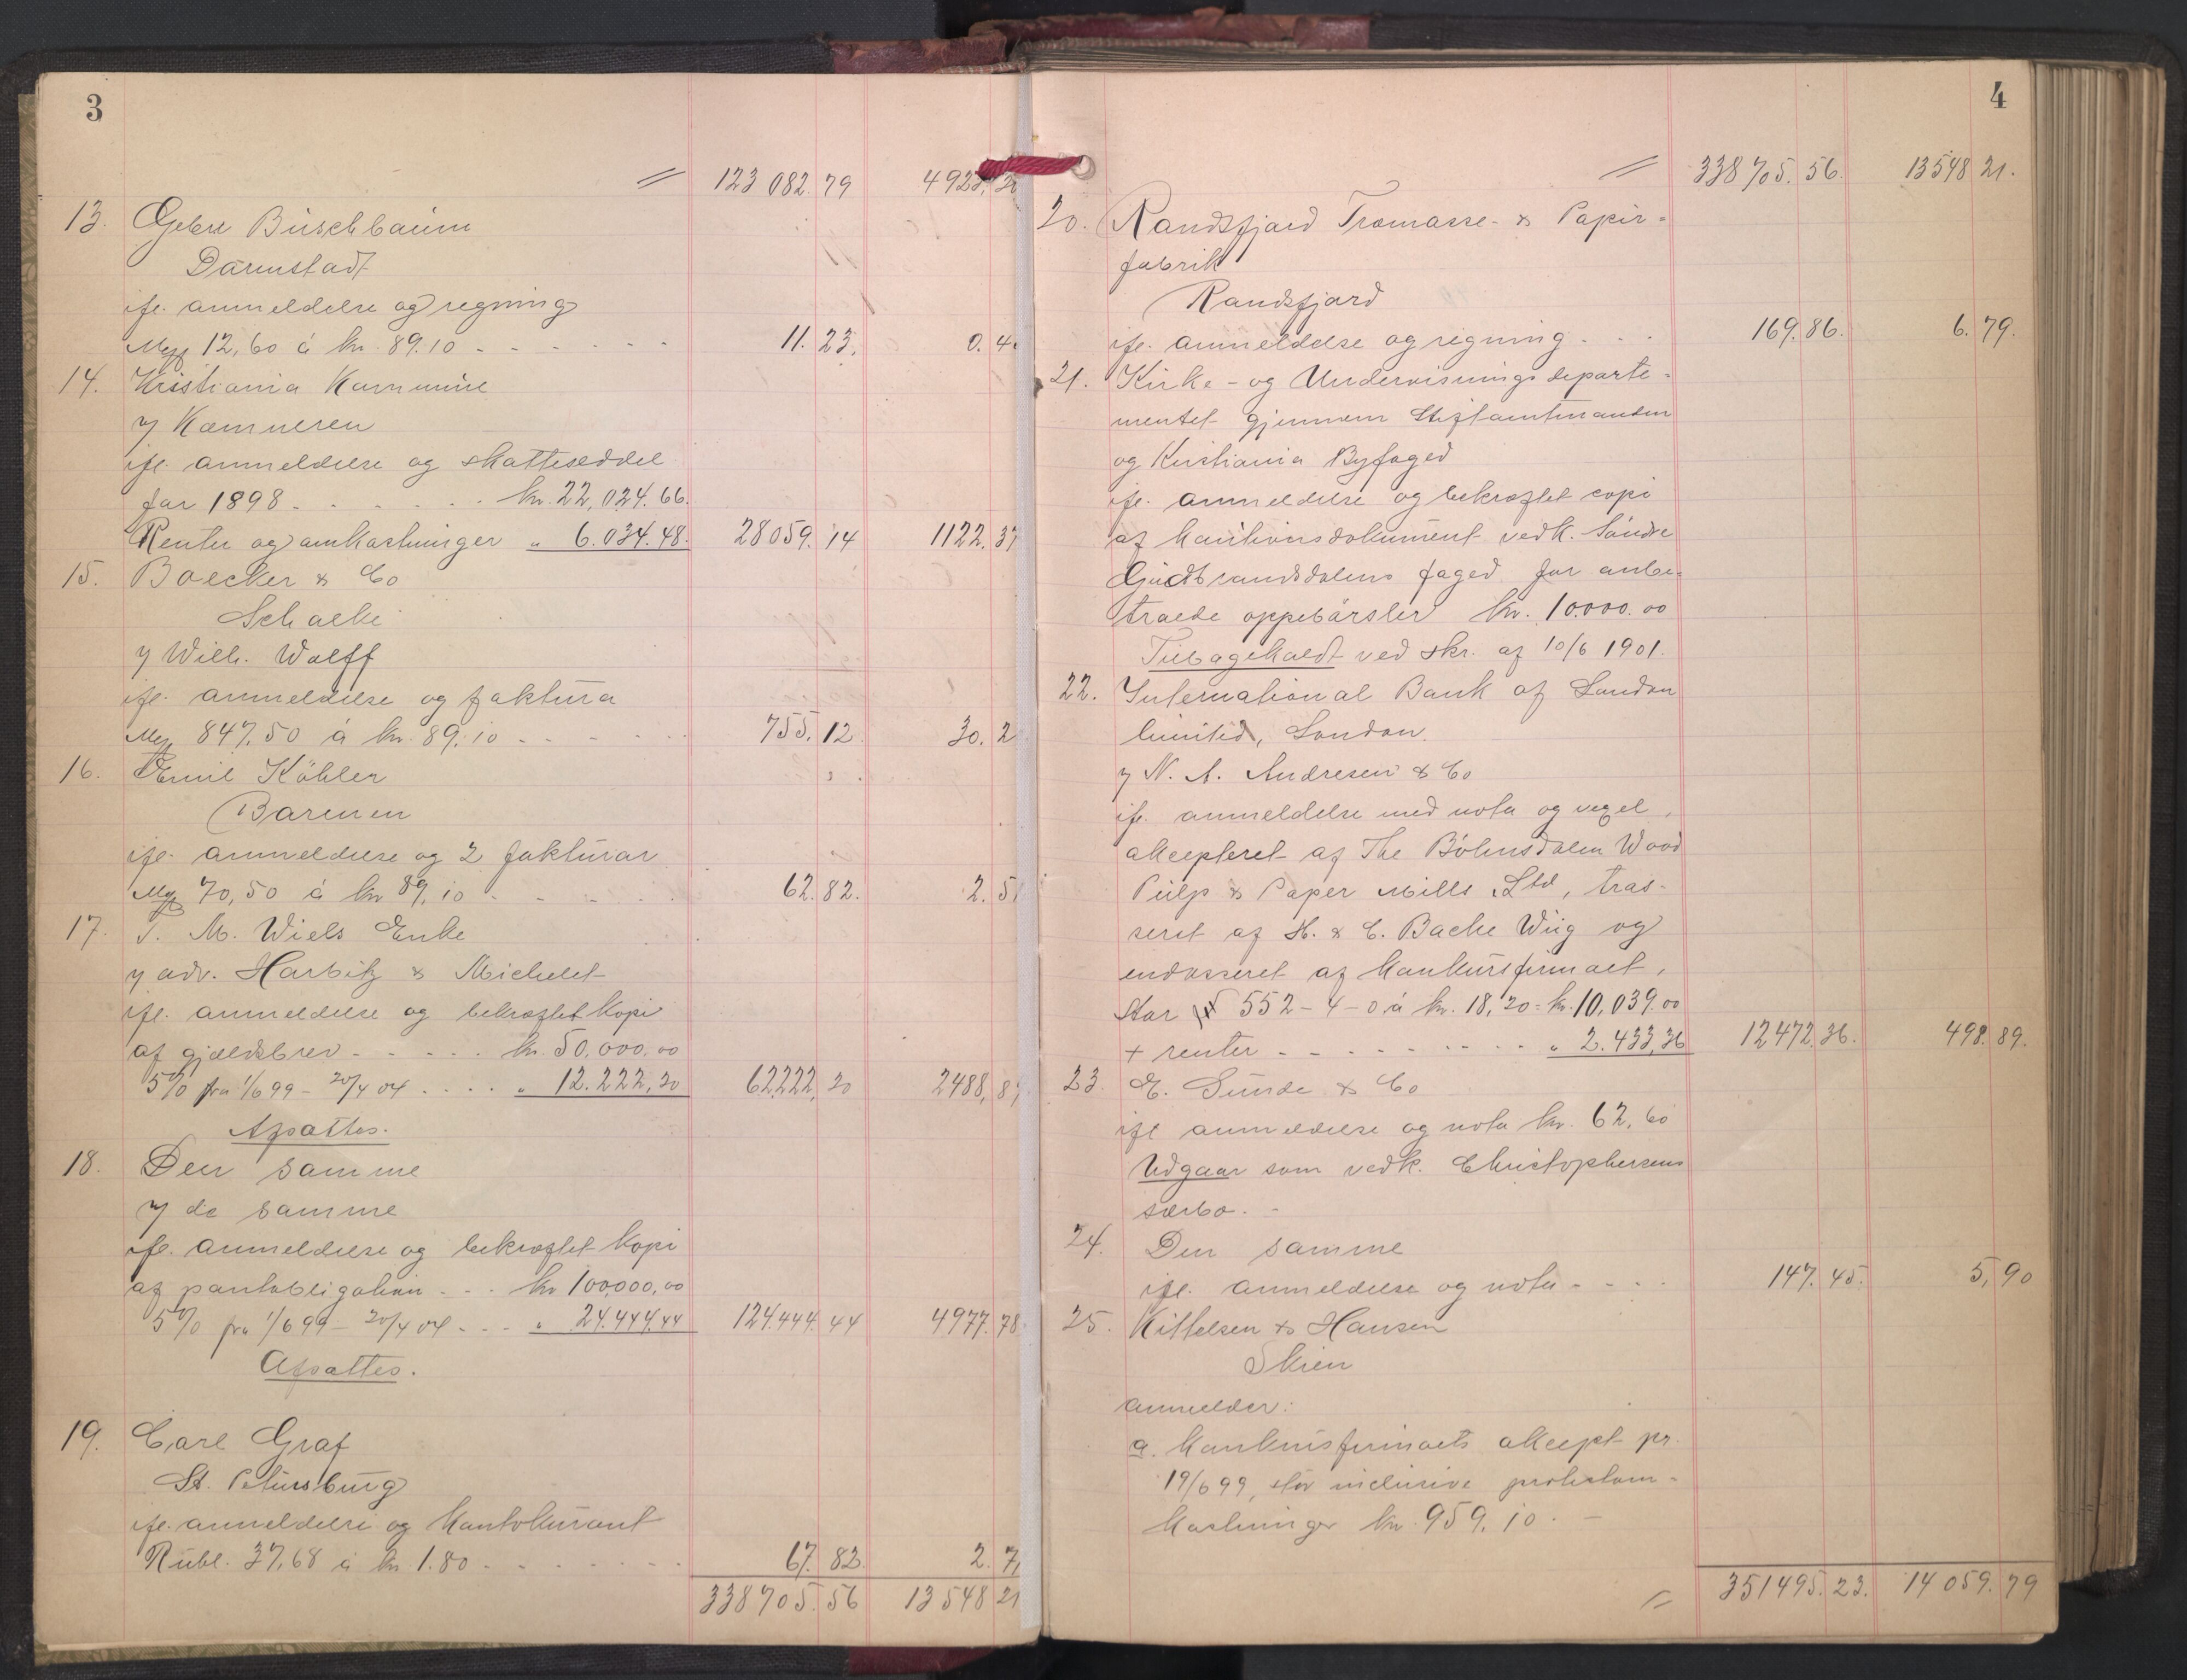 3
= 123 082. 79 4923,
13. Gebrr Büschbaüm
Darmstadt
ifl. anmeldelse og regning
12,60 á kr. 89.10 - - - - - - 11. 23. 0. 4
14. Kristiania Kommune
v/ Kæmneren
ifl. anmeldelse og skatteseddel
for 1898 - - - - - kr. 22,024.66.
Renter og omkostninger " 6.034.48. 28059. 14 1122. 37
15. Boecker & Co
Schalke
v/ Wilh. Wolff
ifl. anmeldelse og faktüra
847,50 á kr. 89.10 - - - - - 755. 12. 30. 2
16. Emil Köhler
Barmen
ifl. anmeldelse og 2 faktürar
70,50 á kr 89,10 - - - - - 62. 82. 2. 5
17. T. M. Wiels Enke
v/ adv. Harbitz & Michelet
ifl. anmeldelse og bekræftet kopi
af gjældsbrev - - - - - kr. 50,000,00
5% fra 1/6 99 - 20/4 04 - - - - " 12.222,20 62,222, 20 2488, 8
Afsattes.
18. Den samme
v/ de samme
ifl. anmeldelse og bekræftet kopi
af pantobligation - - - kr 100,000,00
5% fra 1/6 99 - 20/4 04 - - - " 24.444.44 124.444. 44 4977. 78
Afsattes.
19. Carl Graf
St. Petersbürg
ifl. anmeldelse og kontokürant
Rübl. 37,68 á kr 1.80 - - - - - - - 67. 82. 2. 7
338705. 56 13548 21
4
= 338705. 56. 13548 21.
20. Randsfjord Træmasse- & Papir-
fabrik
Randsfjord
ifl. anmeldelse og regning - - - 169. 86. 6. 79.
21. Kirke- og Undervisningsdeparte-
mentet gjennem Stiftamtmanden
og Kristiania Byfoged
ifl. anmeldelse og bekræftet copi
af kautionsdokument vedk. Søndre
Gudbrandsdalens foged for anbe-
troede oppebørsler kr. 10.000.00
Tilbagekaldt ved skr. af 10/6 1901.
22. International Bank of London
limited, London.
v/ N. A. Andresen & Co
ifl. anmeldelse med nota og vexel,
akcepteret af The Bøhnsdalen Wood
Pülp & Paper Mills Ltd, tras-
seret af H. & C. Bache Wiig og
endosseret af konkursfirmaet,
stor £ 552-4-0 á kr. 18,20 = kr. 10,039.00
+ renter - - - - - - - - - " 2.433,36 12472. 36. 498. 89.
23. E. Sünde & Co
ifl anmeldelse og nota kr. 62,60
Udgaar som vedk. Christophersens
særbo. -
24. Den samme
ifl. anmeldelse og nota - - - - 147. 45. 5, 90
25. Kittelsen & Hansen
Skien
anmelder:
a. Konkursfirmaets akcept pr.
19/6 99, stor inclusive protestom-
kostninger kr. 959.10. -
= 351495. 23. 14 059. 79